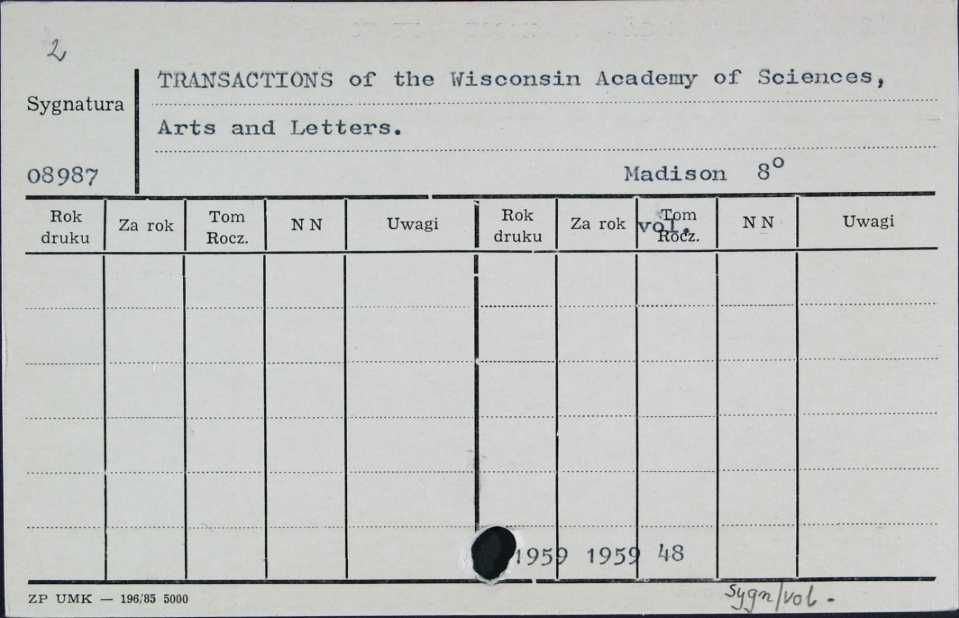 2
TRANSACTIONS of the Wisconsin Academy of Sciences,
Sygnatura
Arts and Letters.
08987
Madison 8°
Rok druku Za rok Tom Rocz. N N Uwagi Rok druku Za rok Tom Rocz. N N Uwagi
vol.
1959 1959 48
ZP UMK — 196/85 5000
sygn/vol.